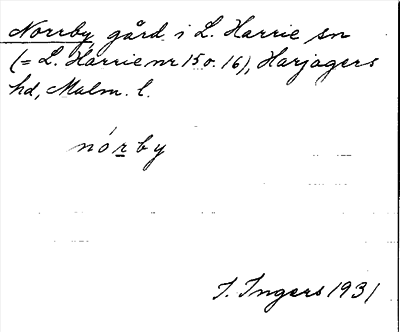 Norrby gård i L. Harrie sn
(= L. Harrie nr 15 o. 16), Harjagers
hd, Malm. l.
nórby
I. Ingers 1931